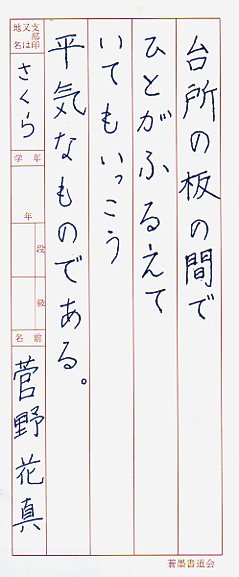 台所の板の間で
ひとがふるえて
いてもいっこう
平気なものである。
支部印又は地名
さくら
学年
年
段
級
名前
菅野花真
蒼墨書道会